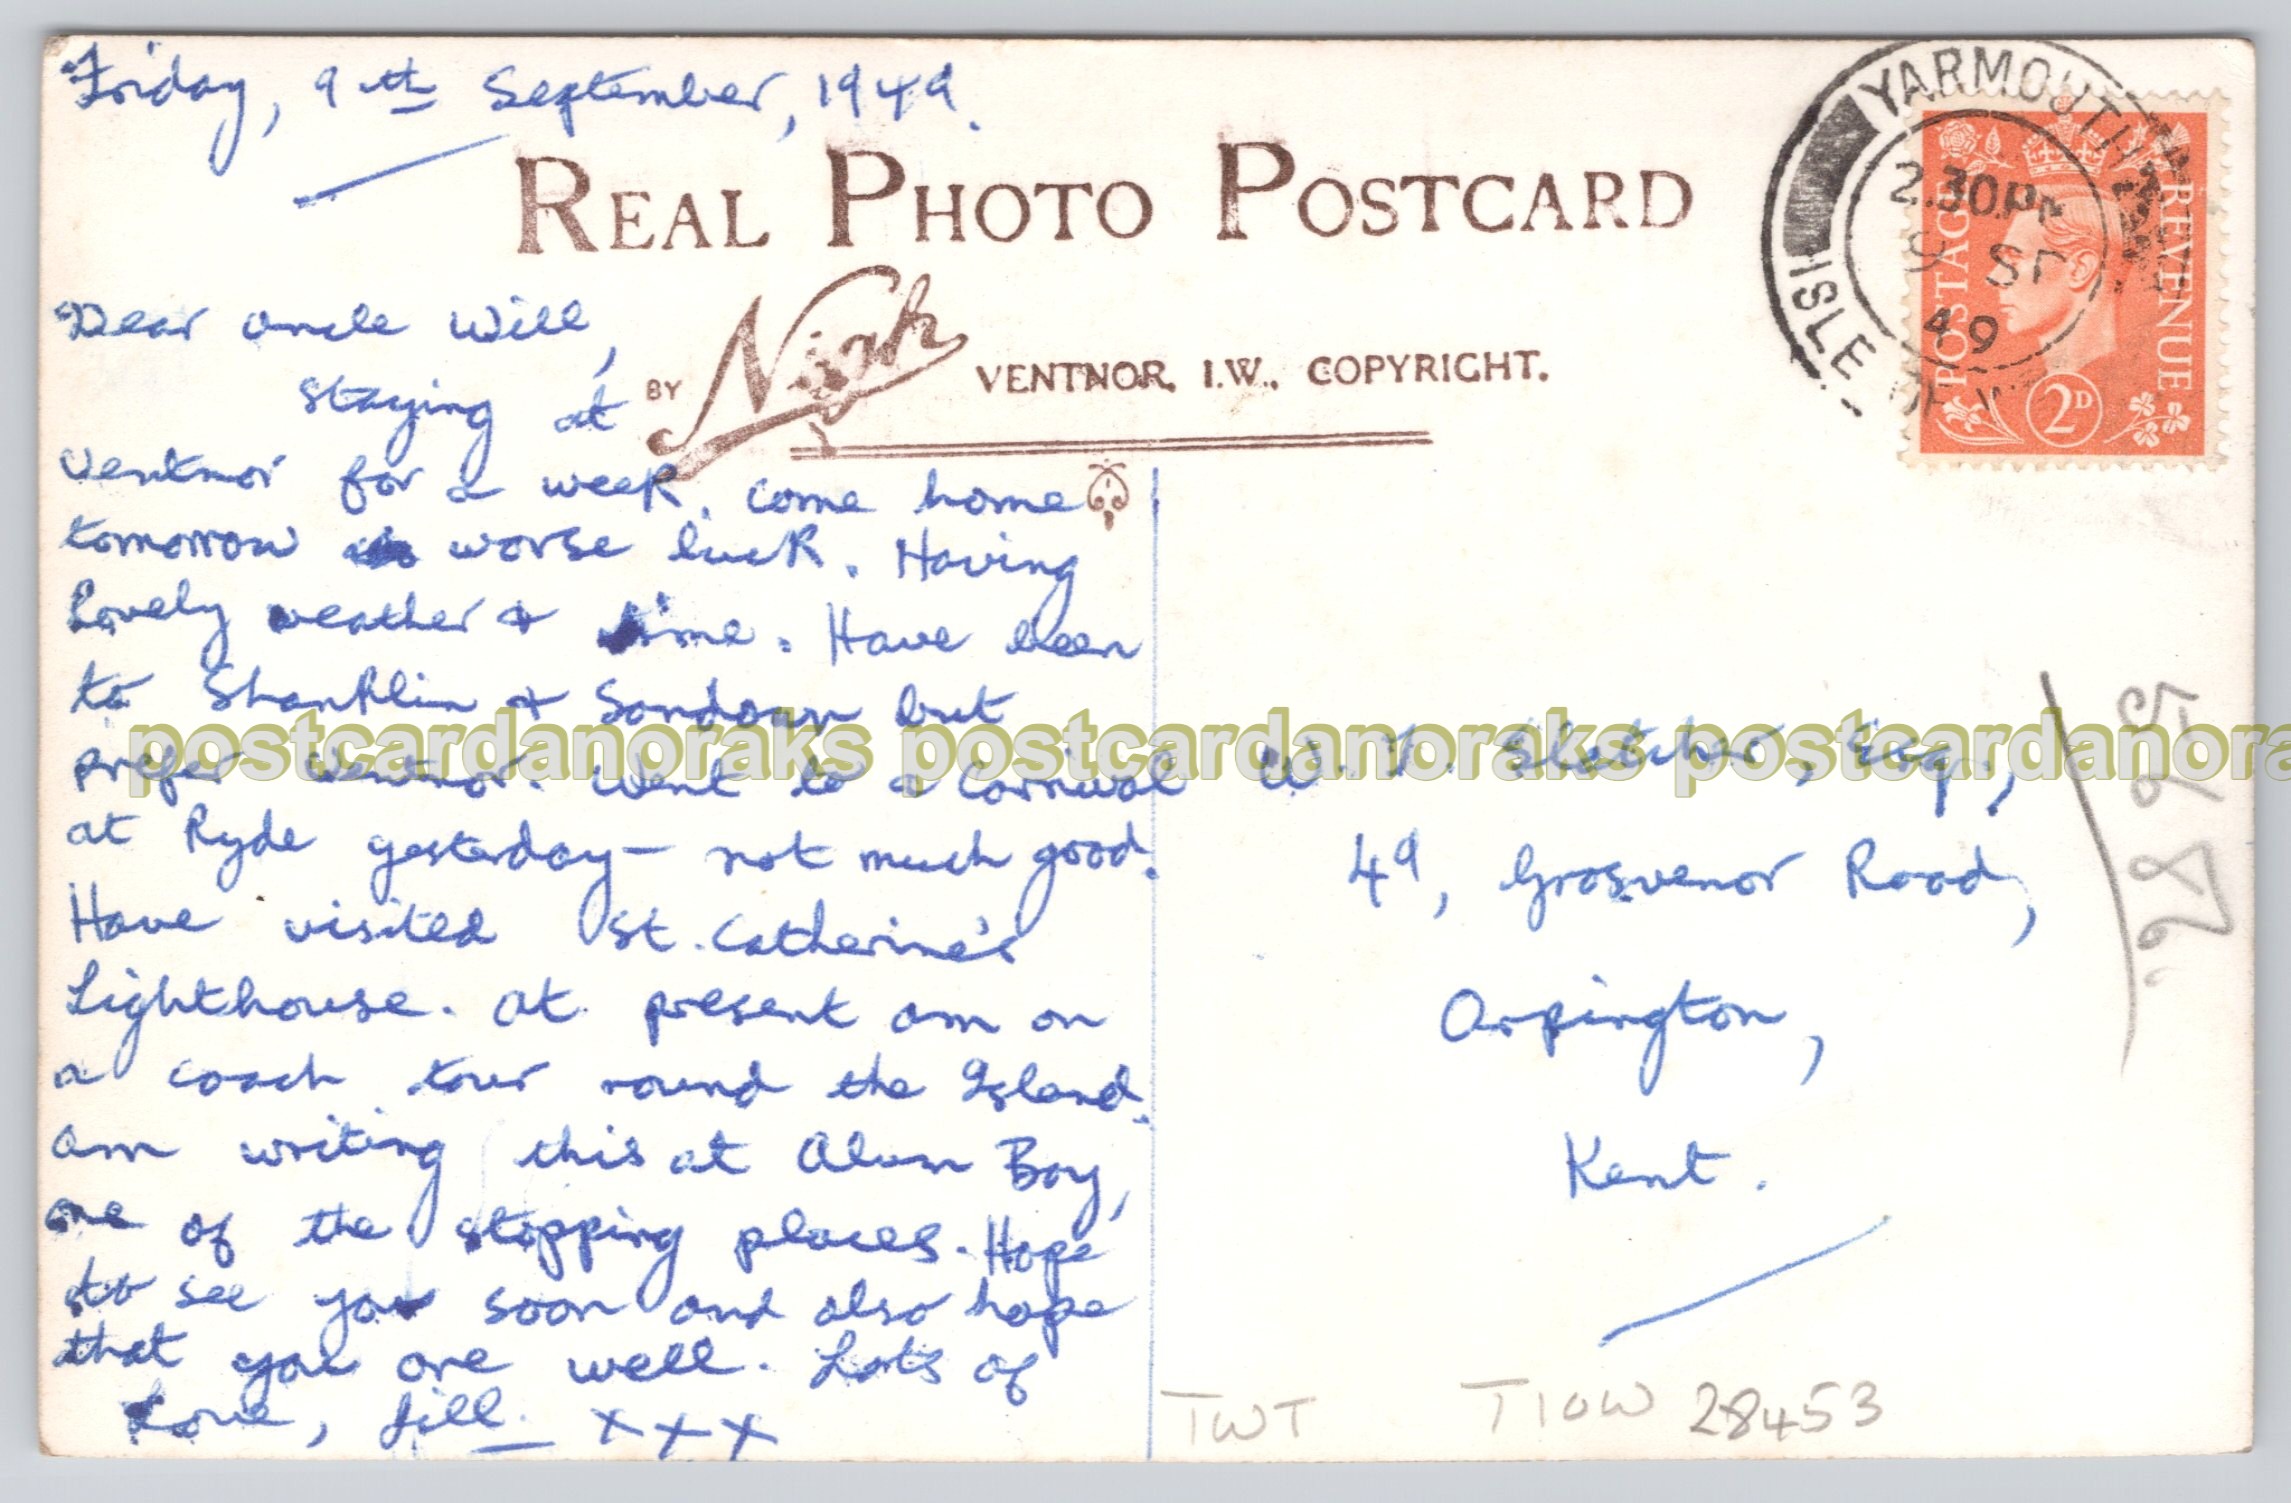 Friday, 9th September, 1949.
REAL PHOTO POSTCARD
BY Nigh VENTNOR, I.W., COPYRIGHT.
Dear Uncle Will,
Staying at
Ventnor for a week. Come home
tomorrow worse luck. Having
lovely weather & time. Have been
to Shanklin & Sandown but
prefer Ventnor. Went to a Carnival
at Ryde yesterday - not much good.
Have visited St. Catherine's
Lighthouse. At present am on
a coach tour round the Island.
Am writing this at Alum Bay,
one of the stopping places. Hope
to see you soon and also hope
that you are well. Lots of
Love, Jill. x x x
YARMOUTH
ISLE OF W
2.30 PM
9 SP
49
POSTAGE
REVENUE
2D
W. Esq.,
49, Grosvenor Road,
Orpington,
Kent.
TWT
T10W 28453
postcardanoraks postcardanoraks postcardanoraks